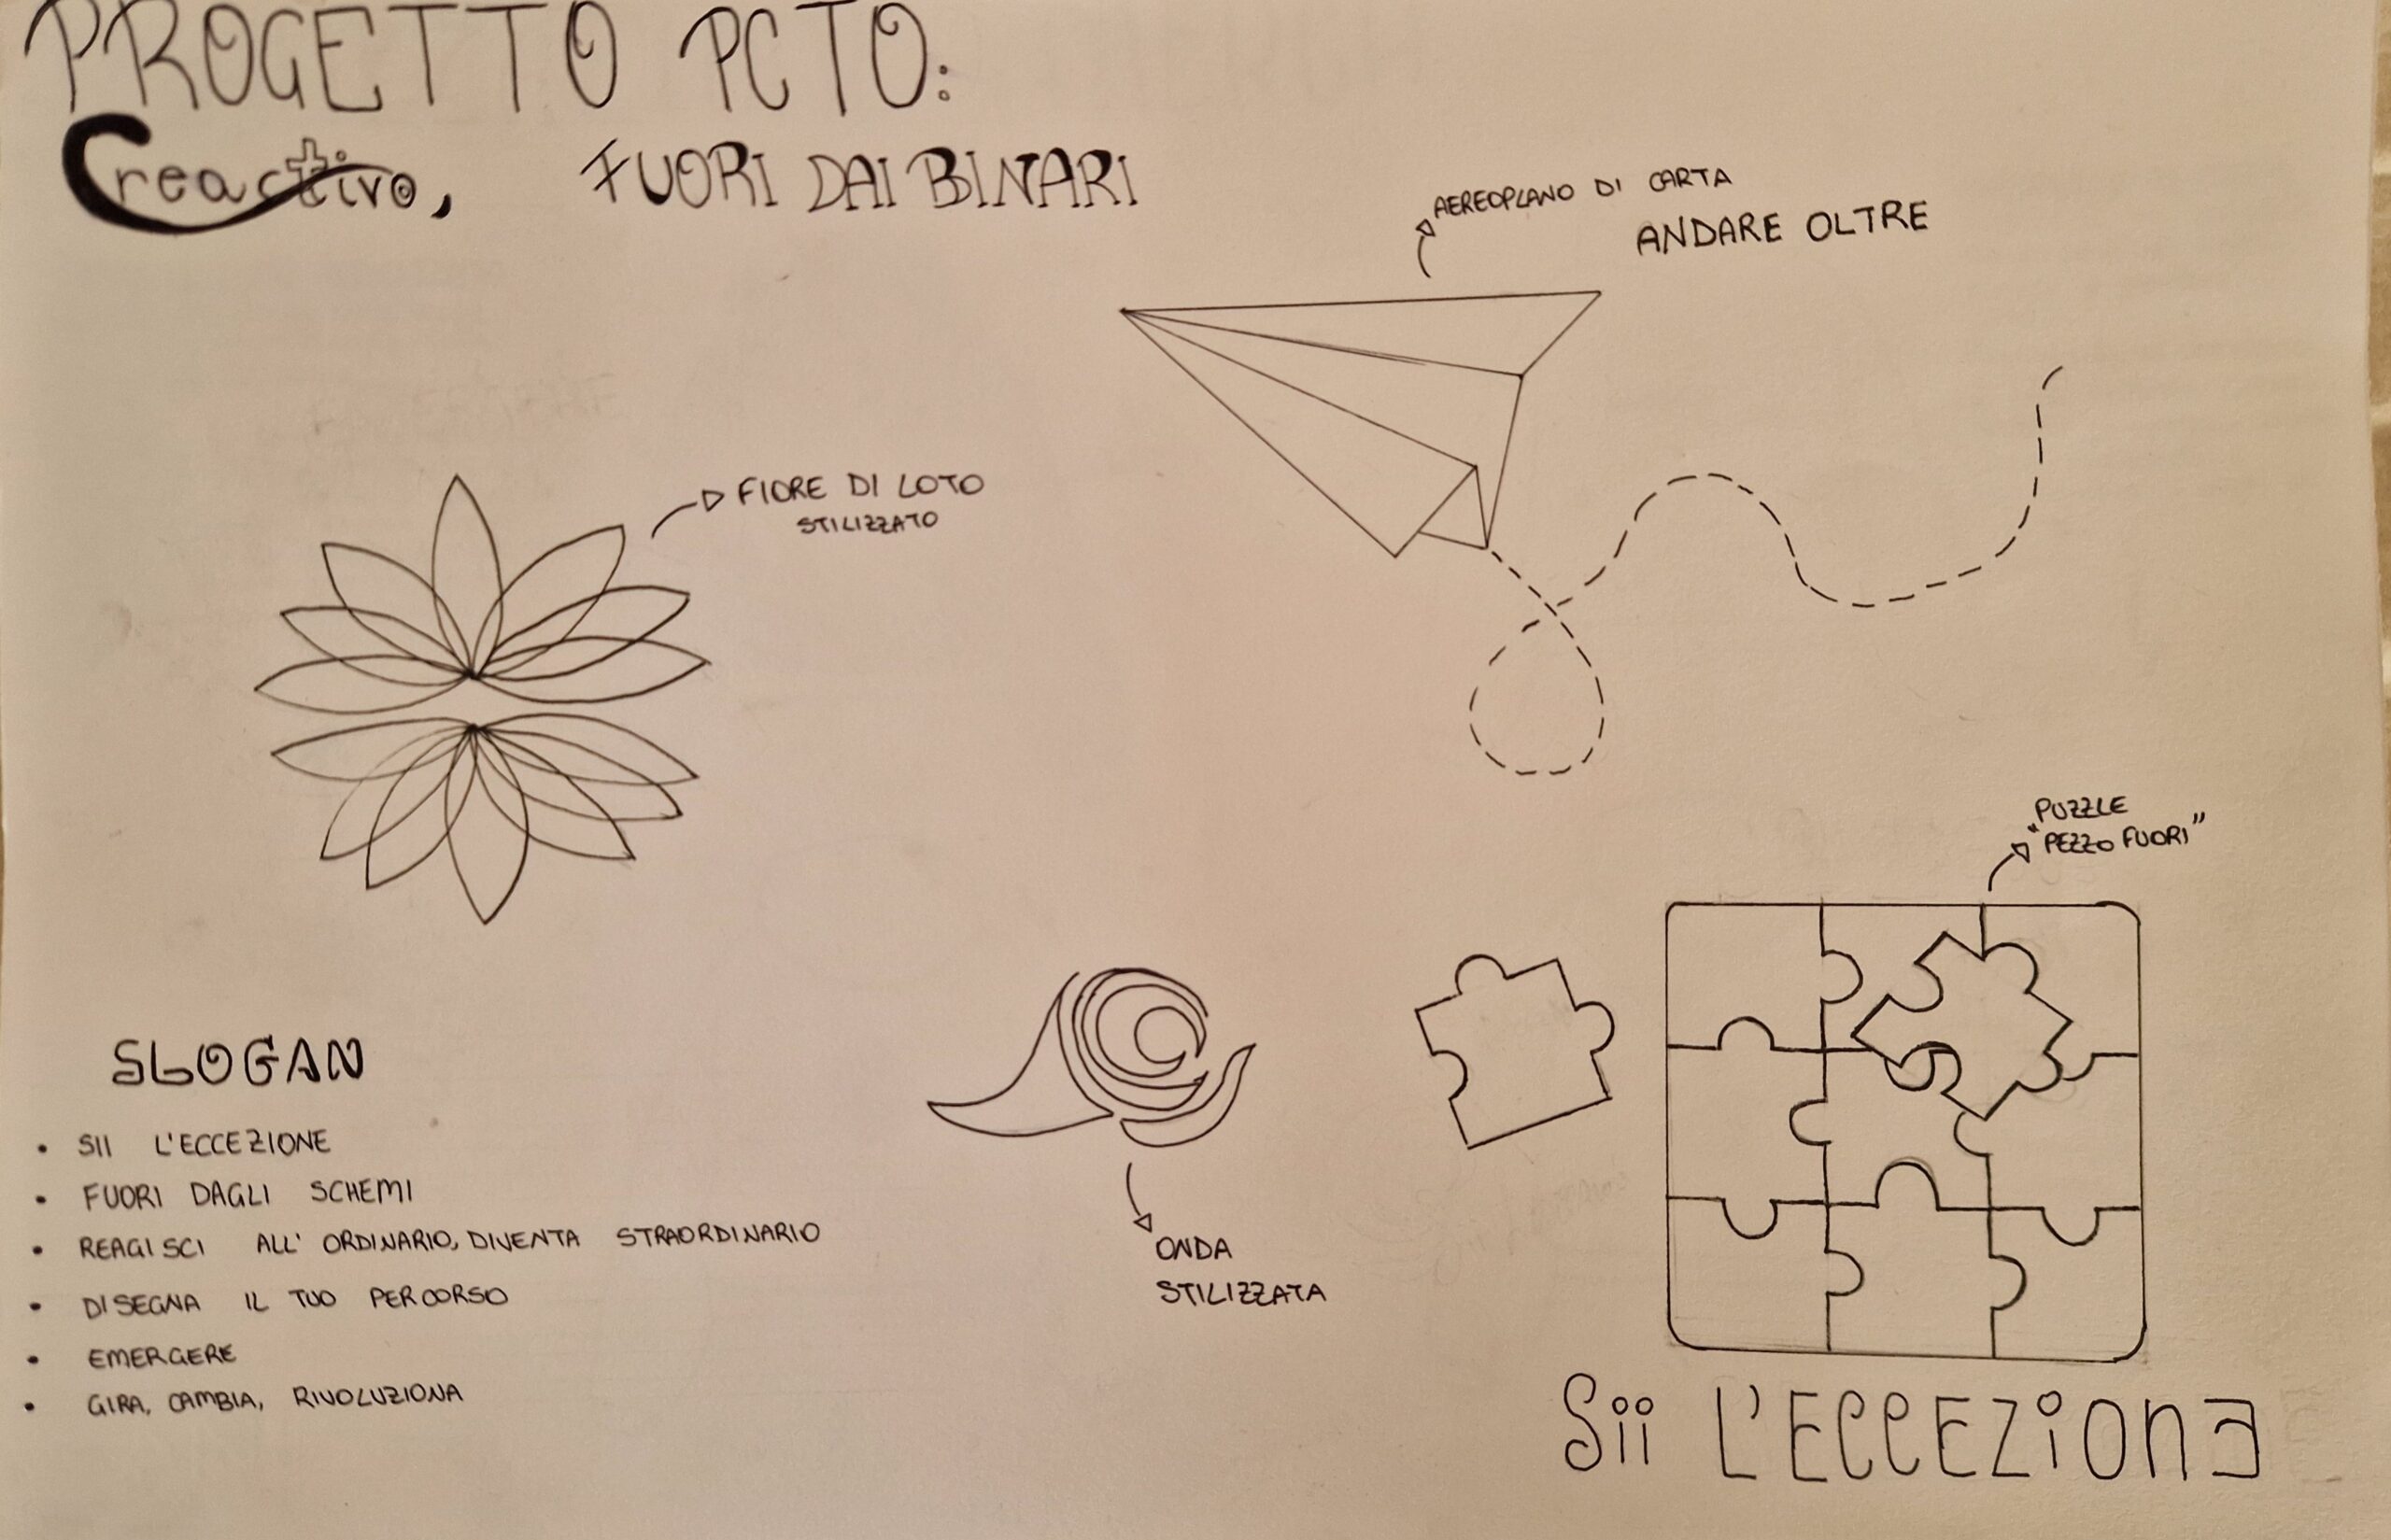 PROGETTO PCTO:
Creactivo, FUORI DAI BINARI
AEREOPLANO DI CARTA
ANDARE OLTRE
FIORE DI LOTO
STILIZZATO
PUZZLE
"PEZZO FUORI"
SLOGAN
• SII L'ECCEZIONE
• FUORI DAGLI SCHEMI
• REAGISCI ALL'ORDINARIO, DIVENTA STRAORDINARIO
• DISEGNA IL TUO PERCORSO
• EMERGERE
• GIRA, CAMBIA, RIVOLUZIONA
ONDA
STILIZZATA
Sii L'ECCEZionE